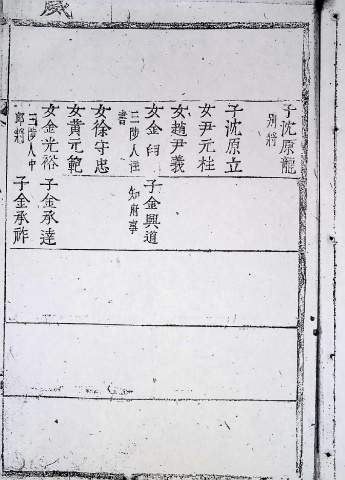 子沈原龍
別將
子沈原立
女尹元柱
女趙尹義
女金臼 子金興道
三陟人注 知府事
書
女徐守忠
女黄元範
女金光裕 子金承達
三陟人中 子金承祚
郎將